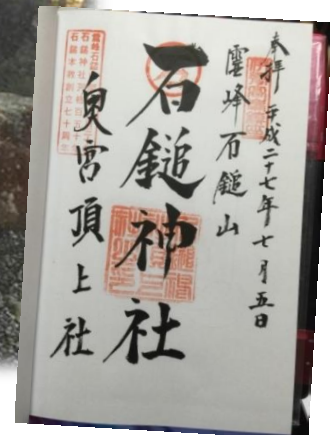 奉拝 平成二十七年七月五日
霊峰石鎚山
石鎚神社
奥宮頂上社